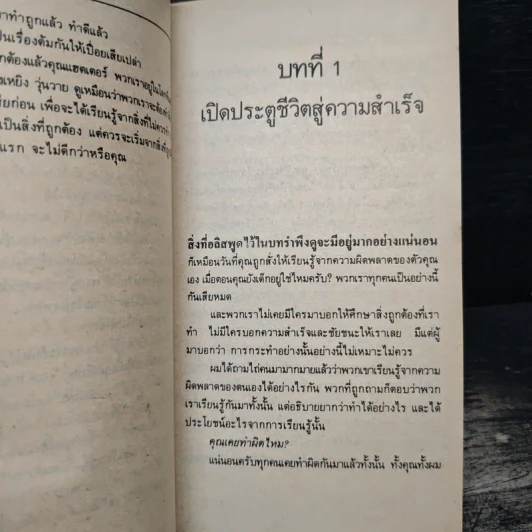 าทำถูกแล้ว ทำดีแล้ว
ป็นเรื่องต้มกันให้เปื่อยเสียเปล่า
กต้องแล้วคุณแฮตเตอร์ พวกเราอยู่ใน
งเหยิง วุ่นวาย ดูเหมือนว่าพวกเราจะต้อง
รียก่อน เพื่อจะได้เรียนรู้จากสิ่งที่ไม่ควร
เป็นสิ่งที่ถูกต้อง แต่ควรจะเริ่มจากสิ่งที่
แรก จะไม่ดีกว่าหรือคุณ
บทที่ 1
เปิดประตูชีวิตสู่ความสำเร็จ
สิ่งที่อลิสพูดไว้ในบทรำพึงดูจะมีอยู่มากอย่างแน่นอน
ก็เหมือนวันที่คุณถูกสั่งให้เรียนรู้จากความผิดพลาดของตัวคุณ
เอง เมื่อตอนคุณยังเด็กอยู่ใช่ไหมครับ? พวกเราทุกคนเป็นอย่างนี้
กันเสียหมด
และพวกเราไม่เคยมีใครมาบอกให้ศึกษาสิ่งถูกต้องที่เรา
ทำ ไม่มีใครบอกความสำเร็จและชัยชนะให้เราเลย มีแต่ผู้
มาบอกว่า การกระทำอย่างนั้นอย่างนี้ไม่เหมาะไม่ควร
ผมได้ถามไถ่คนมามากมายแล้วว่าพวกเขาเรียนรู้จากความ
ผิดพลาดของตนเองได้อย่างไรกัน พวกที่ถูกถามก็ตอบว่าพวก
เราเรียนรู้กันมาทั้งนั้น แต่อธิบายยากว่าทำได้อย่างไร และได้
ประโยชน์อะไรจากการเรียนรู้นั้น
คุณเคยทำผิดไหม?
แน่นอนครับทุกคนเคยทำผิดกันมาแล้วทั้งนั้น ทั้งคุณทั้งผม